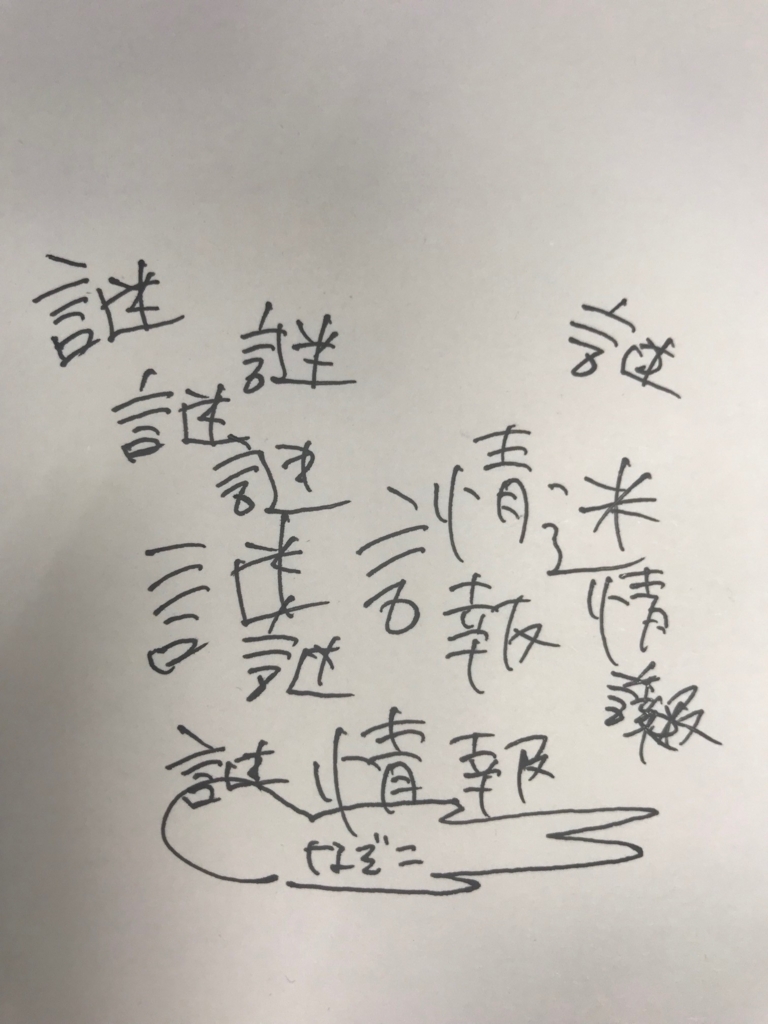 謎
謎
謎
謎
謎
謎
情
報
謎
情
謎
謎
謎情報
なぞニ